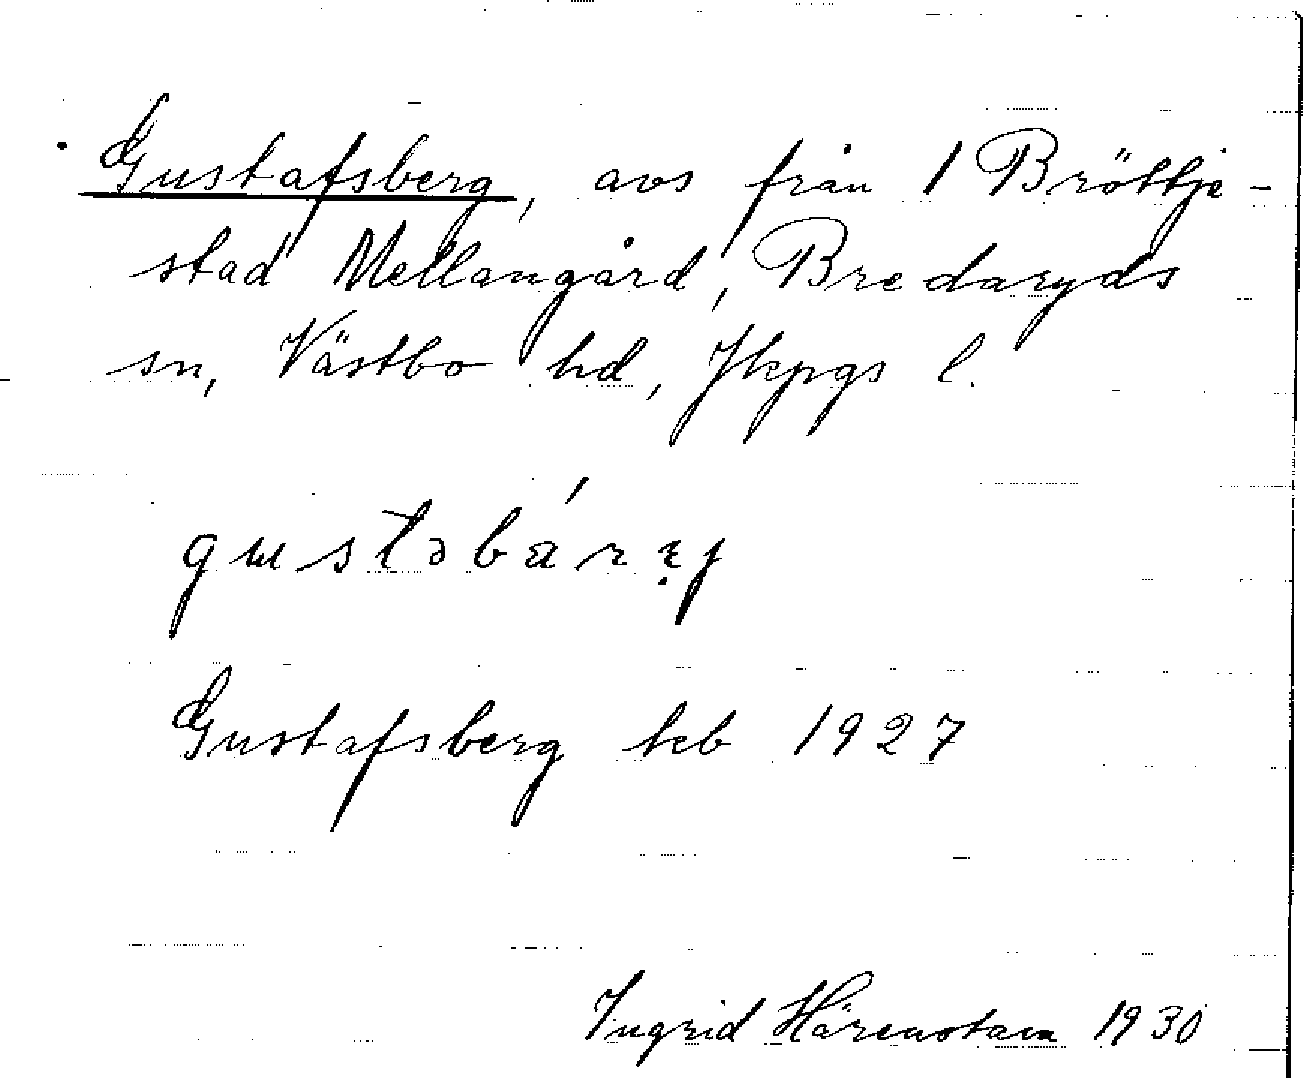 Gustafsberg, avs från 1 Bröttje-
stad Mellangård, Bredaryds
sn, Västbo hd, Jkpgs l.
Gustafsberg kb 1927
Ingrid Härenstam 1930